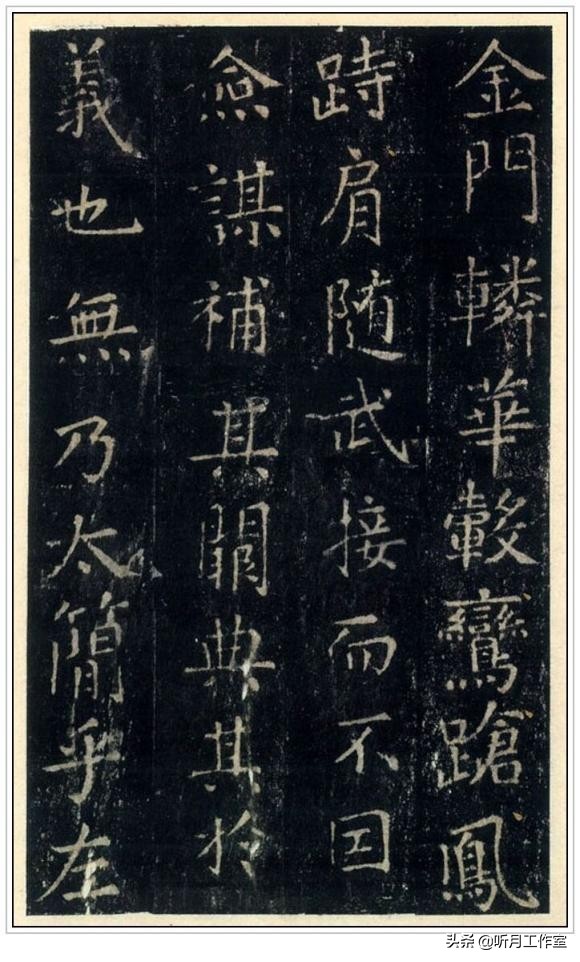 金門轔華轂鸞蹌鳳
跱肩随武接而不因
僉謀補其闕典其扵
義也無乃太簡乎左
头条 @听月工作室